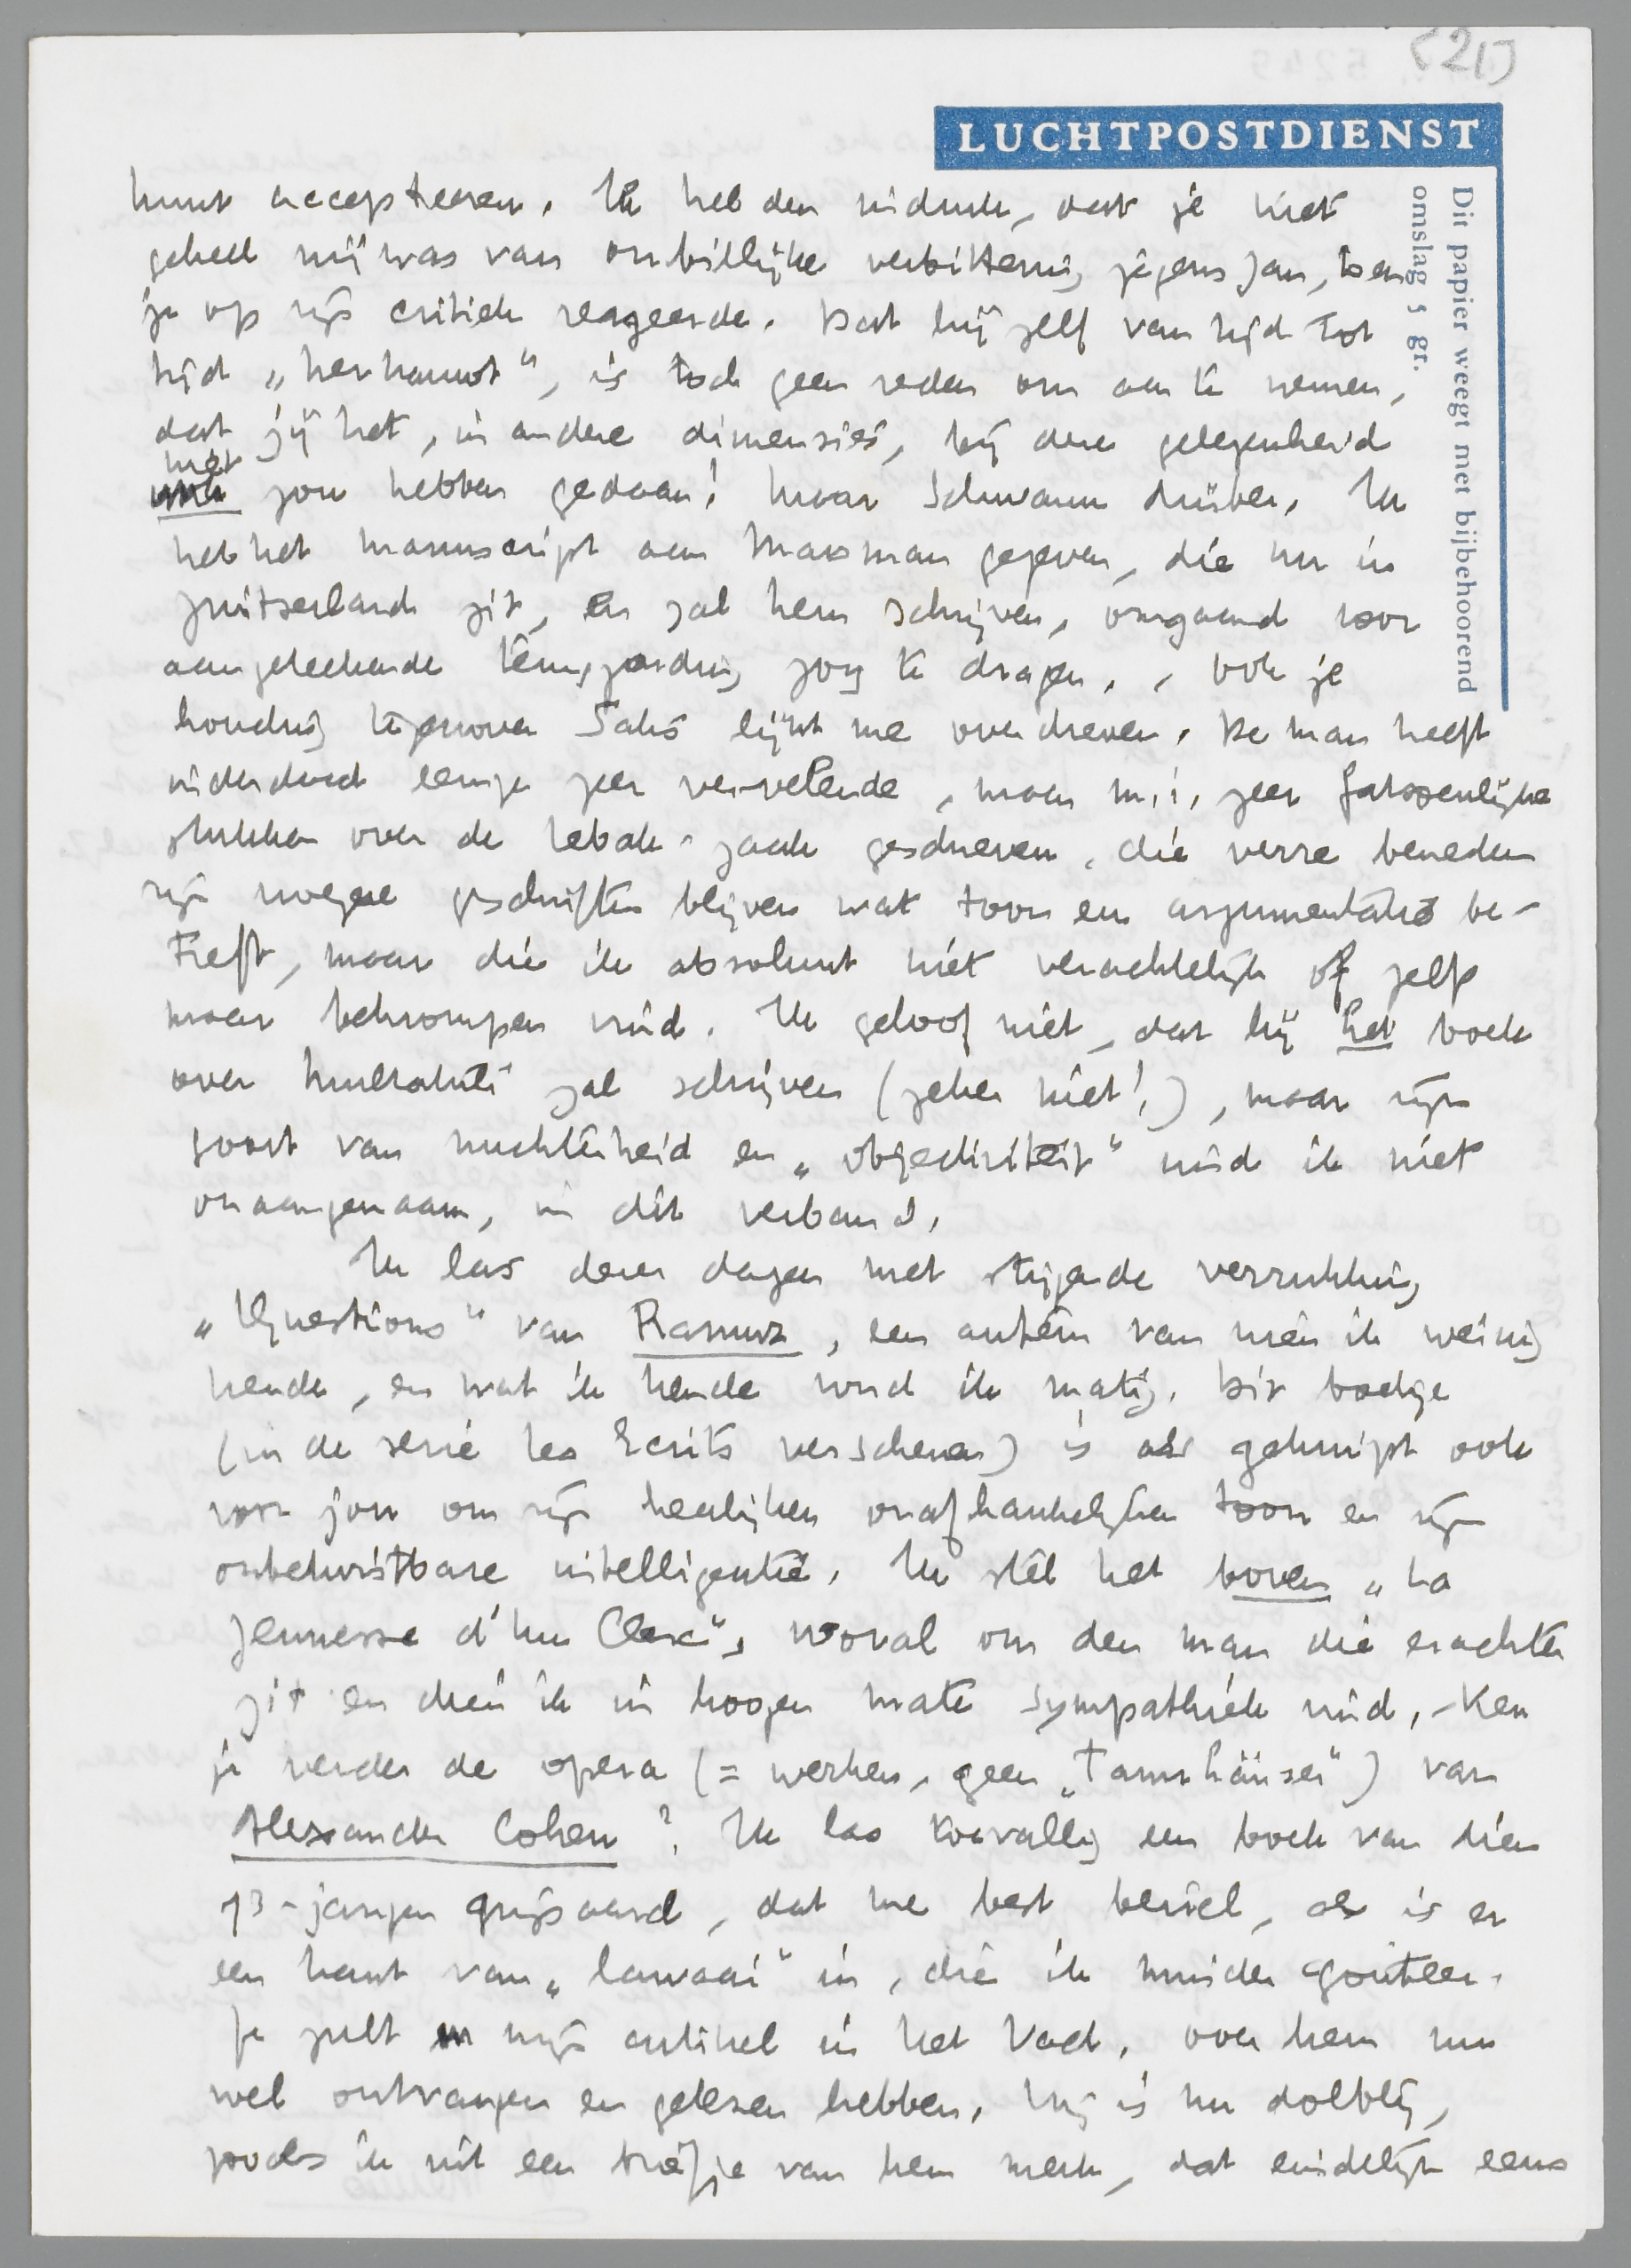 (21)
LUCHTPOSTDIENST
Dit papier weegt met bijbehoorend
omslag 5 gr.
kunt accepteeren. Ik heb den indruk, dat je niet
geheel vrij was van onbillijke verbittering jegens Jan, toen
je op zijn critiek reageerde. Dat hij zelf van tijd tot
tijd „herkauwt", is toch geen reden om aan te nemen,
dat jij het, in andere dimensies, bij deze gelegenheid
niet zou hebben gedaan! Maar Schwamm drüber. Ik
heb het manuscript aan Marsman gegeven, die nu in
Zwitserland zit, en zal hem schrijven, omgaand voor
aangeteekende terugzending zorg te dragen. - Ook je
houding tegenover Saks lijkt me overdreven. De man heeft
inderdaad eenige zeer vervelende, maar m.i. zeer fatsoenlijke
stukken over de Lebak-zaak geschreven, die verre beneden
zijn vroegere geschriften blijven wat toon en argumentatie be-
treft, maar die ik absoluut niet verachtelijk of zelfs
maar bekrompen vind. Ik geloof niet, dat hij het boek
over Multatuli zal schrijven (zeker niet!), maar zijn
soort van nuchterheid en „objectiviteit" vind ik niet
onaangenaam, in dit verband.
Ik las dezer dagen met stijgende verrukking
„Questions" van Ramuz, een auteur van wien ik weinig
kende, en wat ik kende vond ik matig. Dit boekje
(in de serie Les Ecrits verschenen) is als geknipt ook
voor jou om zijn heerlijken onafhankelijken toon en zijn
onbetwistbare intelligentie. Ik stel het boven „La
Jeunesse d'un Clerc", vooral om den man die erachter
zit en dien ik in hooge mate sympathiek vind. - Ken
je verder de opera (= werken, geen „Tannhäuser") van
Alexander Cohen? Ik las toevallig een boek van dien
73-jarigen grijsaard, dat me best beviel, al is er
een kant van „lawaai" in, die ik minder goûteer.
Je zult mijn artikel in het Vad. over hem nu
wel ontvangen en gelezen hebben. Hij is nu dolblij,
zooals ik uit een briefje van hem merk, dat eindelijk eens